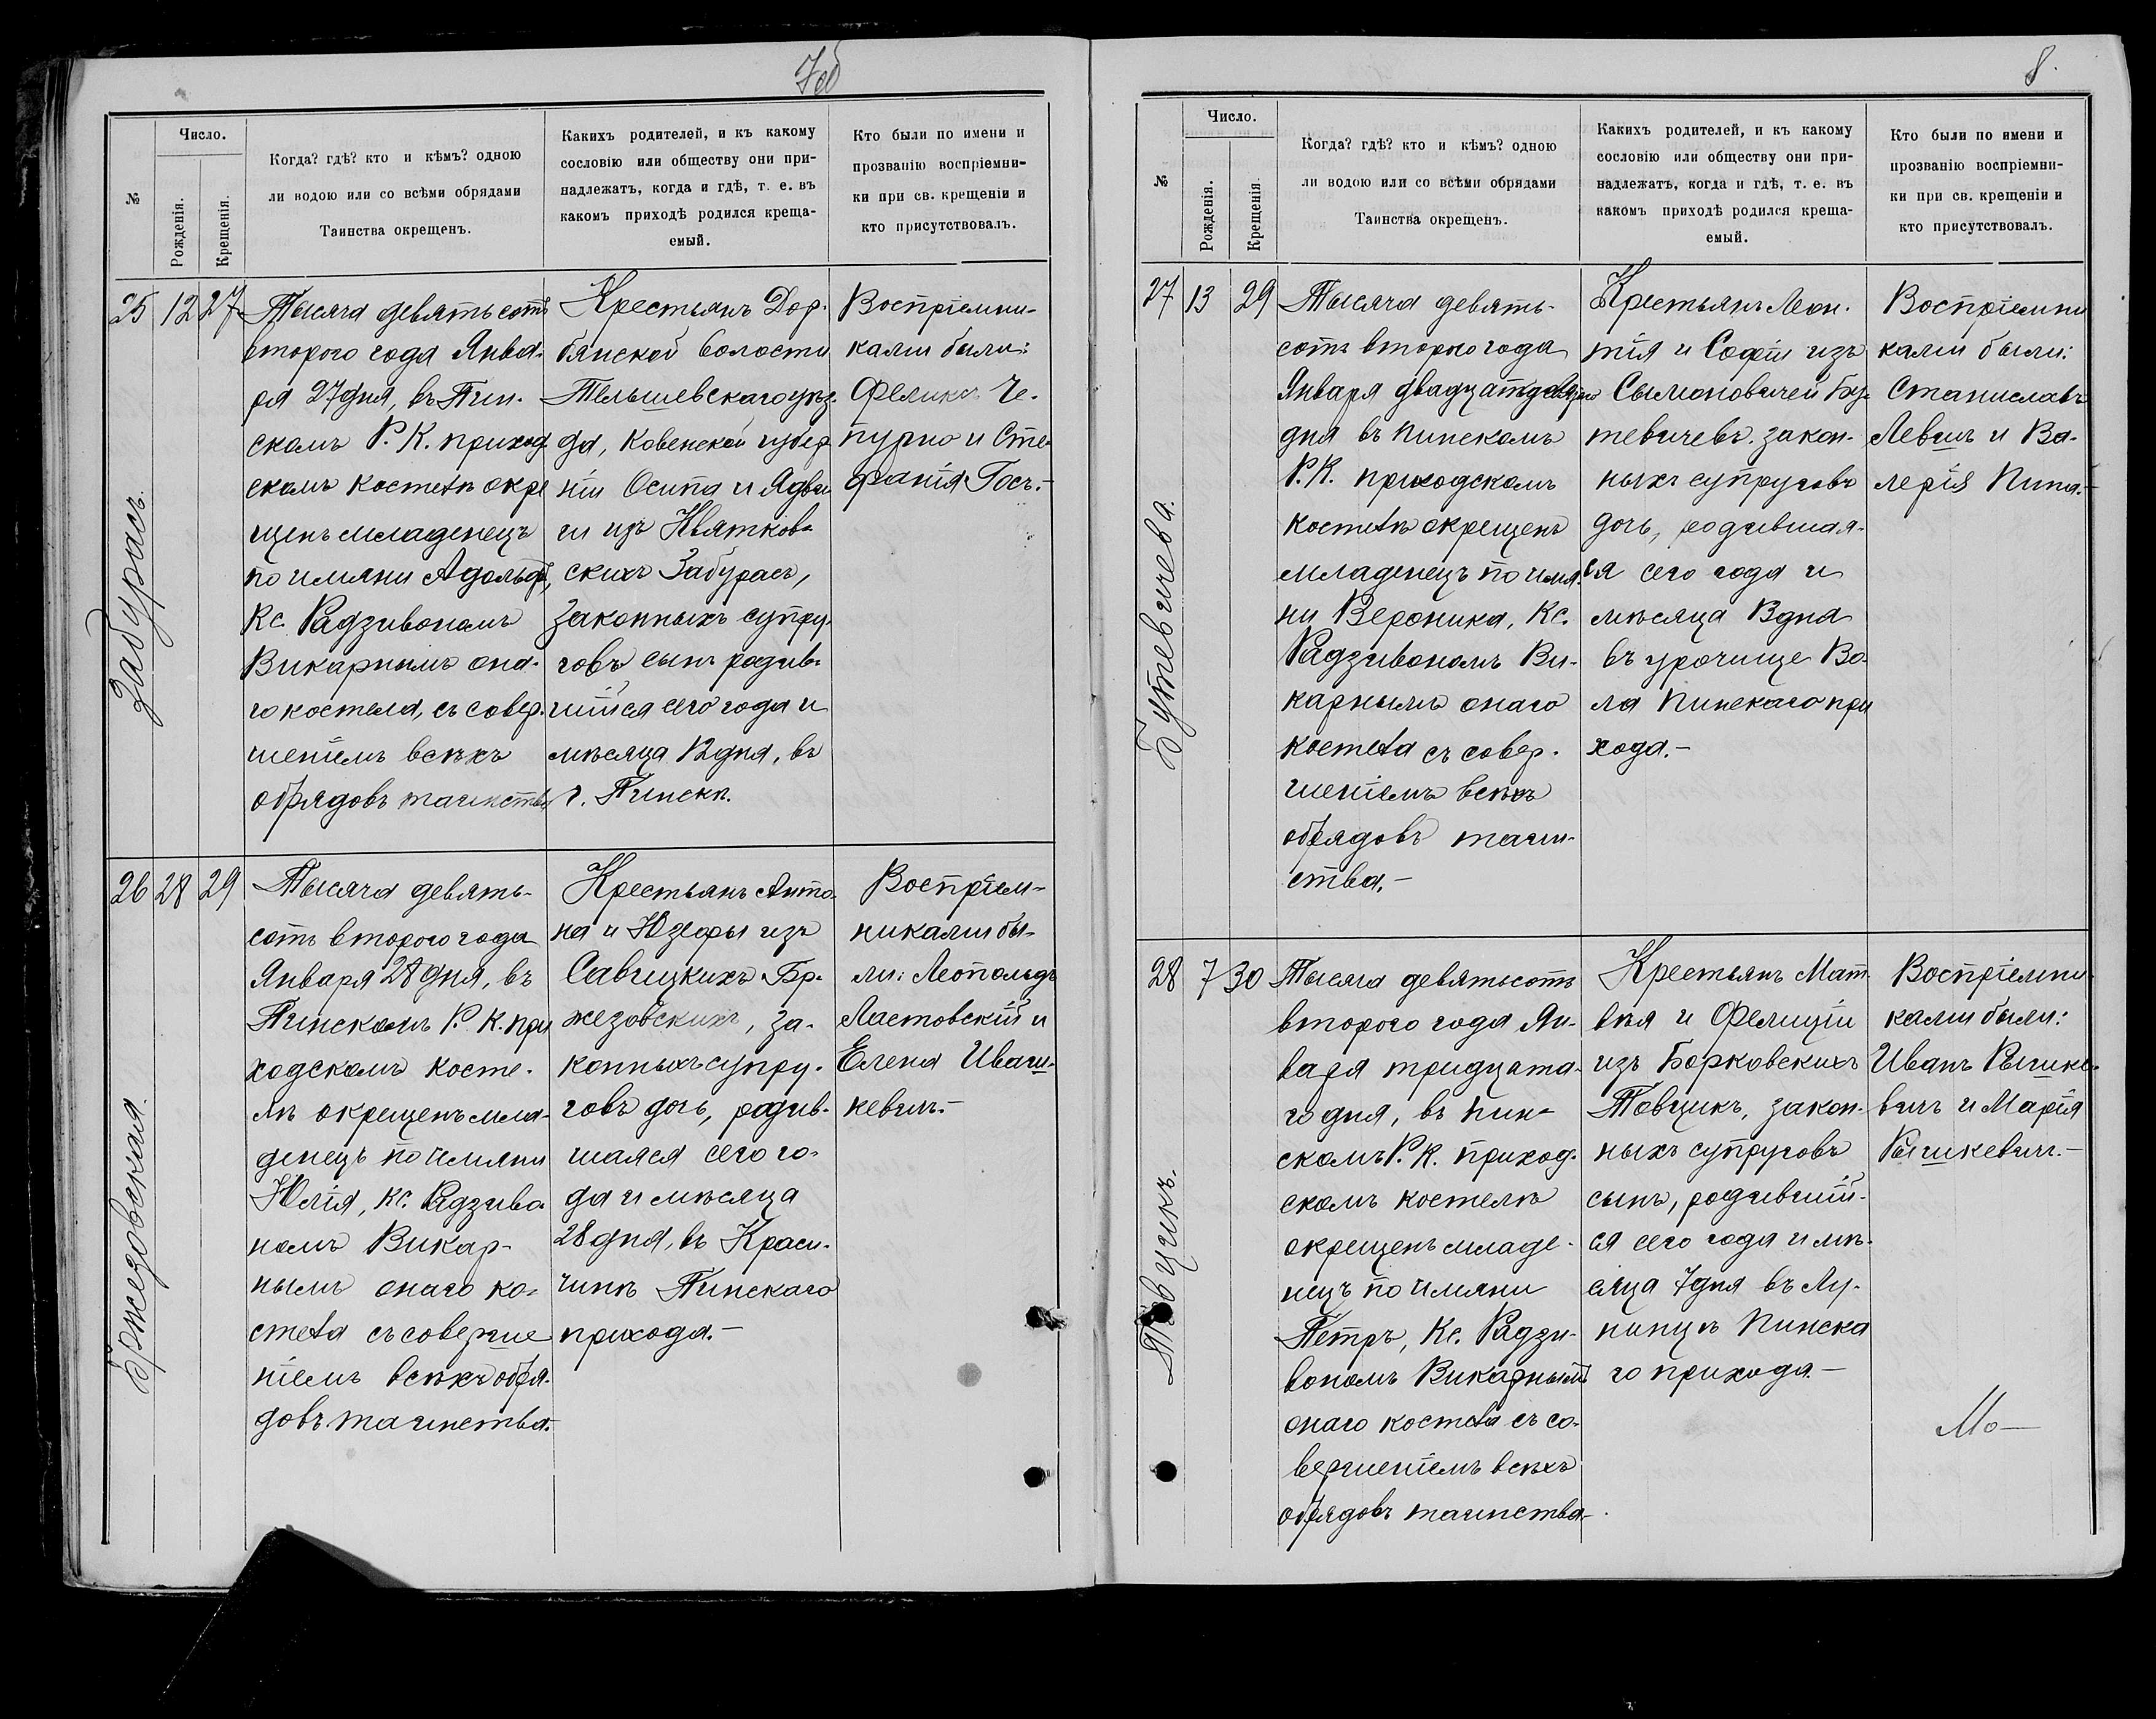 7об
№
Число.
Рожденія.
Крещенія.
Когда? гдѣ? кто и кѣмъ? одною
ли водою или со всѣми обрядами
Таинства окрещенъ.
Какихъ родителей, и къ какому
сословію или обществу они при-
надлежатъ, когда и гдѣ, т. е. въ
какомъ приходѣ родился креща-
емый.
Кто были по имени и
прозванію воспріемни-
ки при св. крещеніи и
кто присутствовалъ.
25
12
27
Забурасъ.
Тысяча девятьсотъ
второго года Янва-
ря 27 дня, въ Пин-
скомъ Р. К. приход
скомъ костелѣ окре
щенъ младенецъ
по имяни Адольфъ,
Кс. Радзивономъ
Викарнымъ она-
го костела, съ совер-
шеніемъ всѣхъ
обрядовъ таинства
Крестьянъ Дор-
бянской волости
Тельшевскаго уѣз-
да, Ковенской губер
ніи Осипа и Ядви
ги изъ Квятков-
скихъ Забурасъ,
законныхъ супру-
говъ сынъ родив-
шійся сего года и
мѣсяца 12 дня, въ
г. Пинскѣ.
Воспріемни-
ками были:
Феликсъ Че-
пурно и Сте-
фанія Госъ.-
26
28
29
Бржезовская.
Тысяча девять-
сотъ второго года
Января 28 дня, въ
Пинскомъ Р. К. при
ходскомъ косте-
лѣ окрещенъ мла-
денецъ по имяни
Юлія, Кс. Радзиво
номъ Викар-
нымъ онаго ко-
стела съ соверше
ніемъ всѣхъ обря-
довъ таинства.
Крестьянъ Анто-
на и Юзефы изъ
Савицкихъ Бр-
жезовскихъ, за-
конныхъ супру-
говъ дочь, родив-
шаяся сего го-
да и мѣсяца
28 дня, въ Краси-
чинѣ Пинскаго
прихода.-
Воспріем-
никами бы-
ли: Леопольдъ
Ластовскій и
Елена Иваш-
кевичъ.-
8.
№
Число.
Рожденія.
Крещенія.
Когда? гдѣ? кто и кѣмъ? одною
ли водою или со всѣми обрядами
Таинства окрещенъ.
Какихъ родителей, и къ какому
сословію или обществу они при-
надлежатъ, когда и гдѣ, т. е. въ
какомъ приходѣ родился креща-
емый.
Кто были по имени и
прозванію воспріемни-
ки при св. крещеніи и
кто присутствовалъ.
27
13
29
Бутевичева.
Тысяча девять-
сотъ второго года
Января двадцатьдевятаго
дня въ Пинскомъ
Р. К. приходскомъ
костелѣ окрещенъ
младенецъ по имя-
ни Вероника, Кс.
Радзивономъ Ви-
карнымъ онаго
костела съ совер-
шеніемъ всѣхъ
обрядовъ таин-
ства.-
Крестьянъ Леон-
тія и Софіи изъ
Сымоновичей Бу-
тевичевъ, закон-
ныхъ супруговъ
дочь, родившая-
ся сего года и
мѣсяца 13 дня
въ урочище Во-
ла Пинскаго при
хода.-
Воспріемни
ками были:
Станиславъ
Левшъ и Ва-
лерія Кипа.-
28
7
30
Товцикъ.
Тысяча девятьсотъ
второго года Ян-
варя тридцата-
го дня, въ Пин-
скомъ Р. К. приход-
скомъ костелѣ
окрещенъ младе-
нецъ по имяни
Петръ, Кс. Радзи-
вономъ Викарнымъ
онаго костела съ со-
вершеніемъ всѣхъ
обрядовъ таинства.-
Крестьянъ Мат-
вѣя и Фелиціи
изъ Борковскихъ
Товцикъ, закон-
ныхъ супруговъ
сынъ, родившій-
ся сего года и мѣ-
сяца 7 дня въ Лу-
нинцѣ Пинска
го прихода.-
Воспріемни-
ками были:
Иванъ Рышке-
вичъ и Марія
Рышкевичъ.-